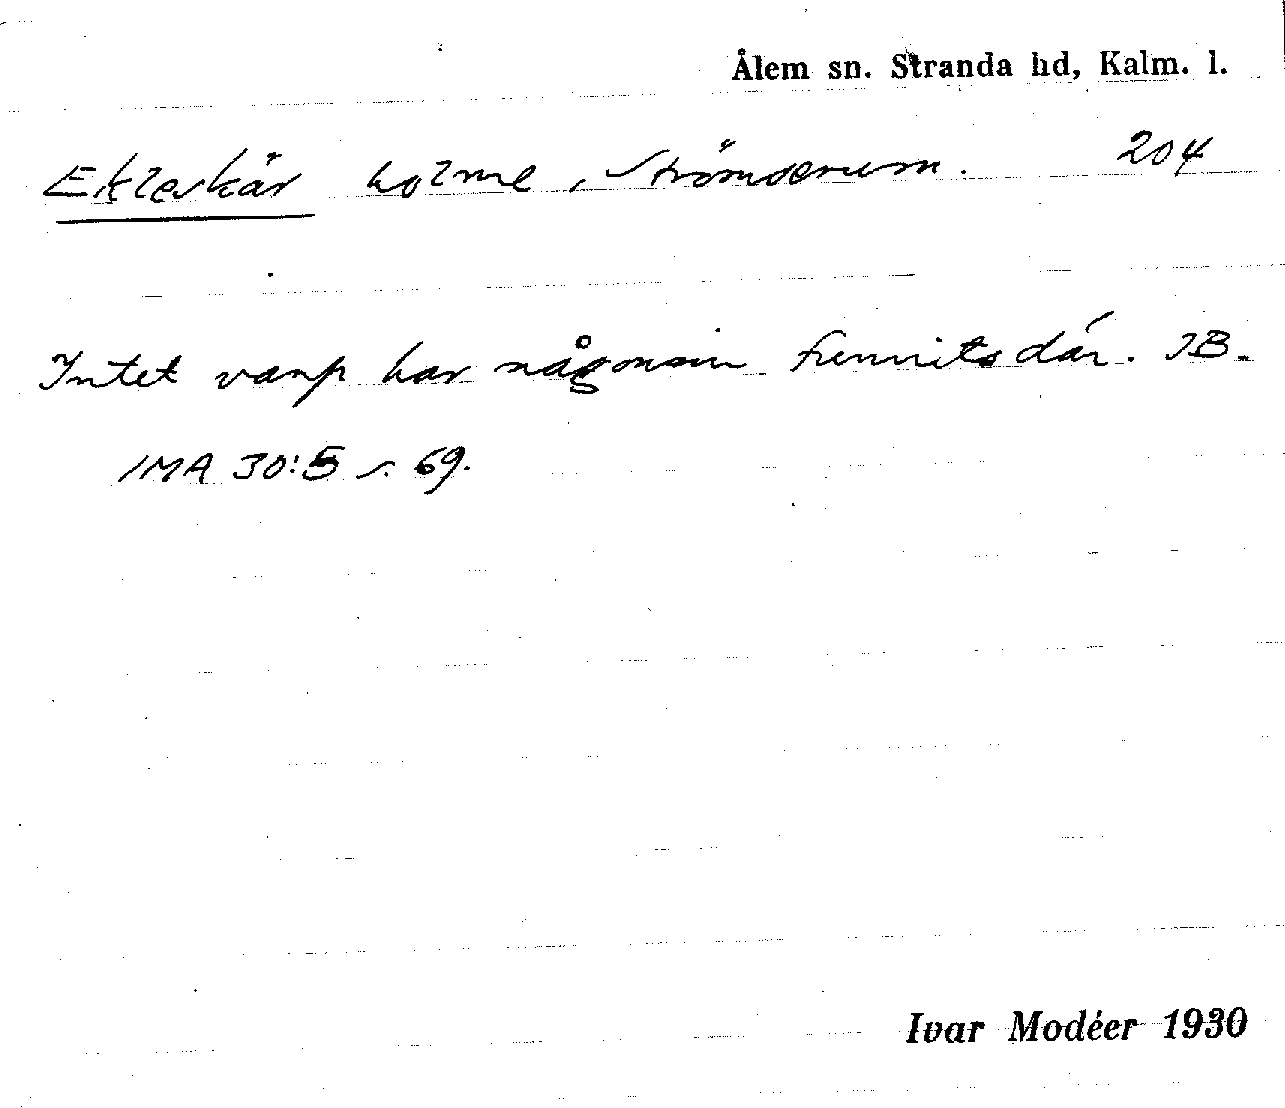 Ålem sn. Stranda hd, Kalm. l.
Ekleskär holme, Strömserum. 204
Intet varp har någonsin funnits där. JB.
IMA 30:5 s. 69.
Ivar Modéer 1930